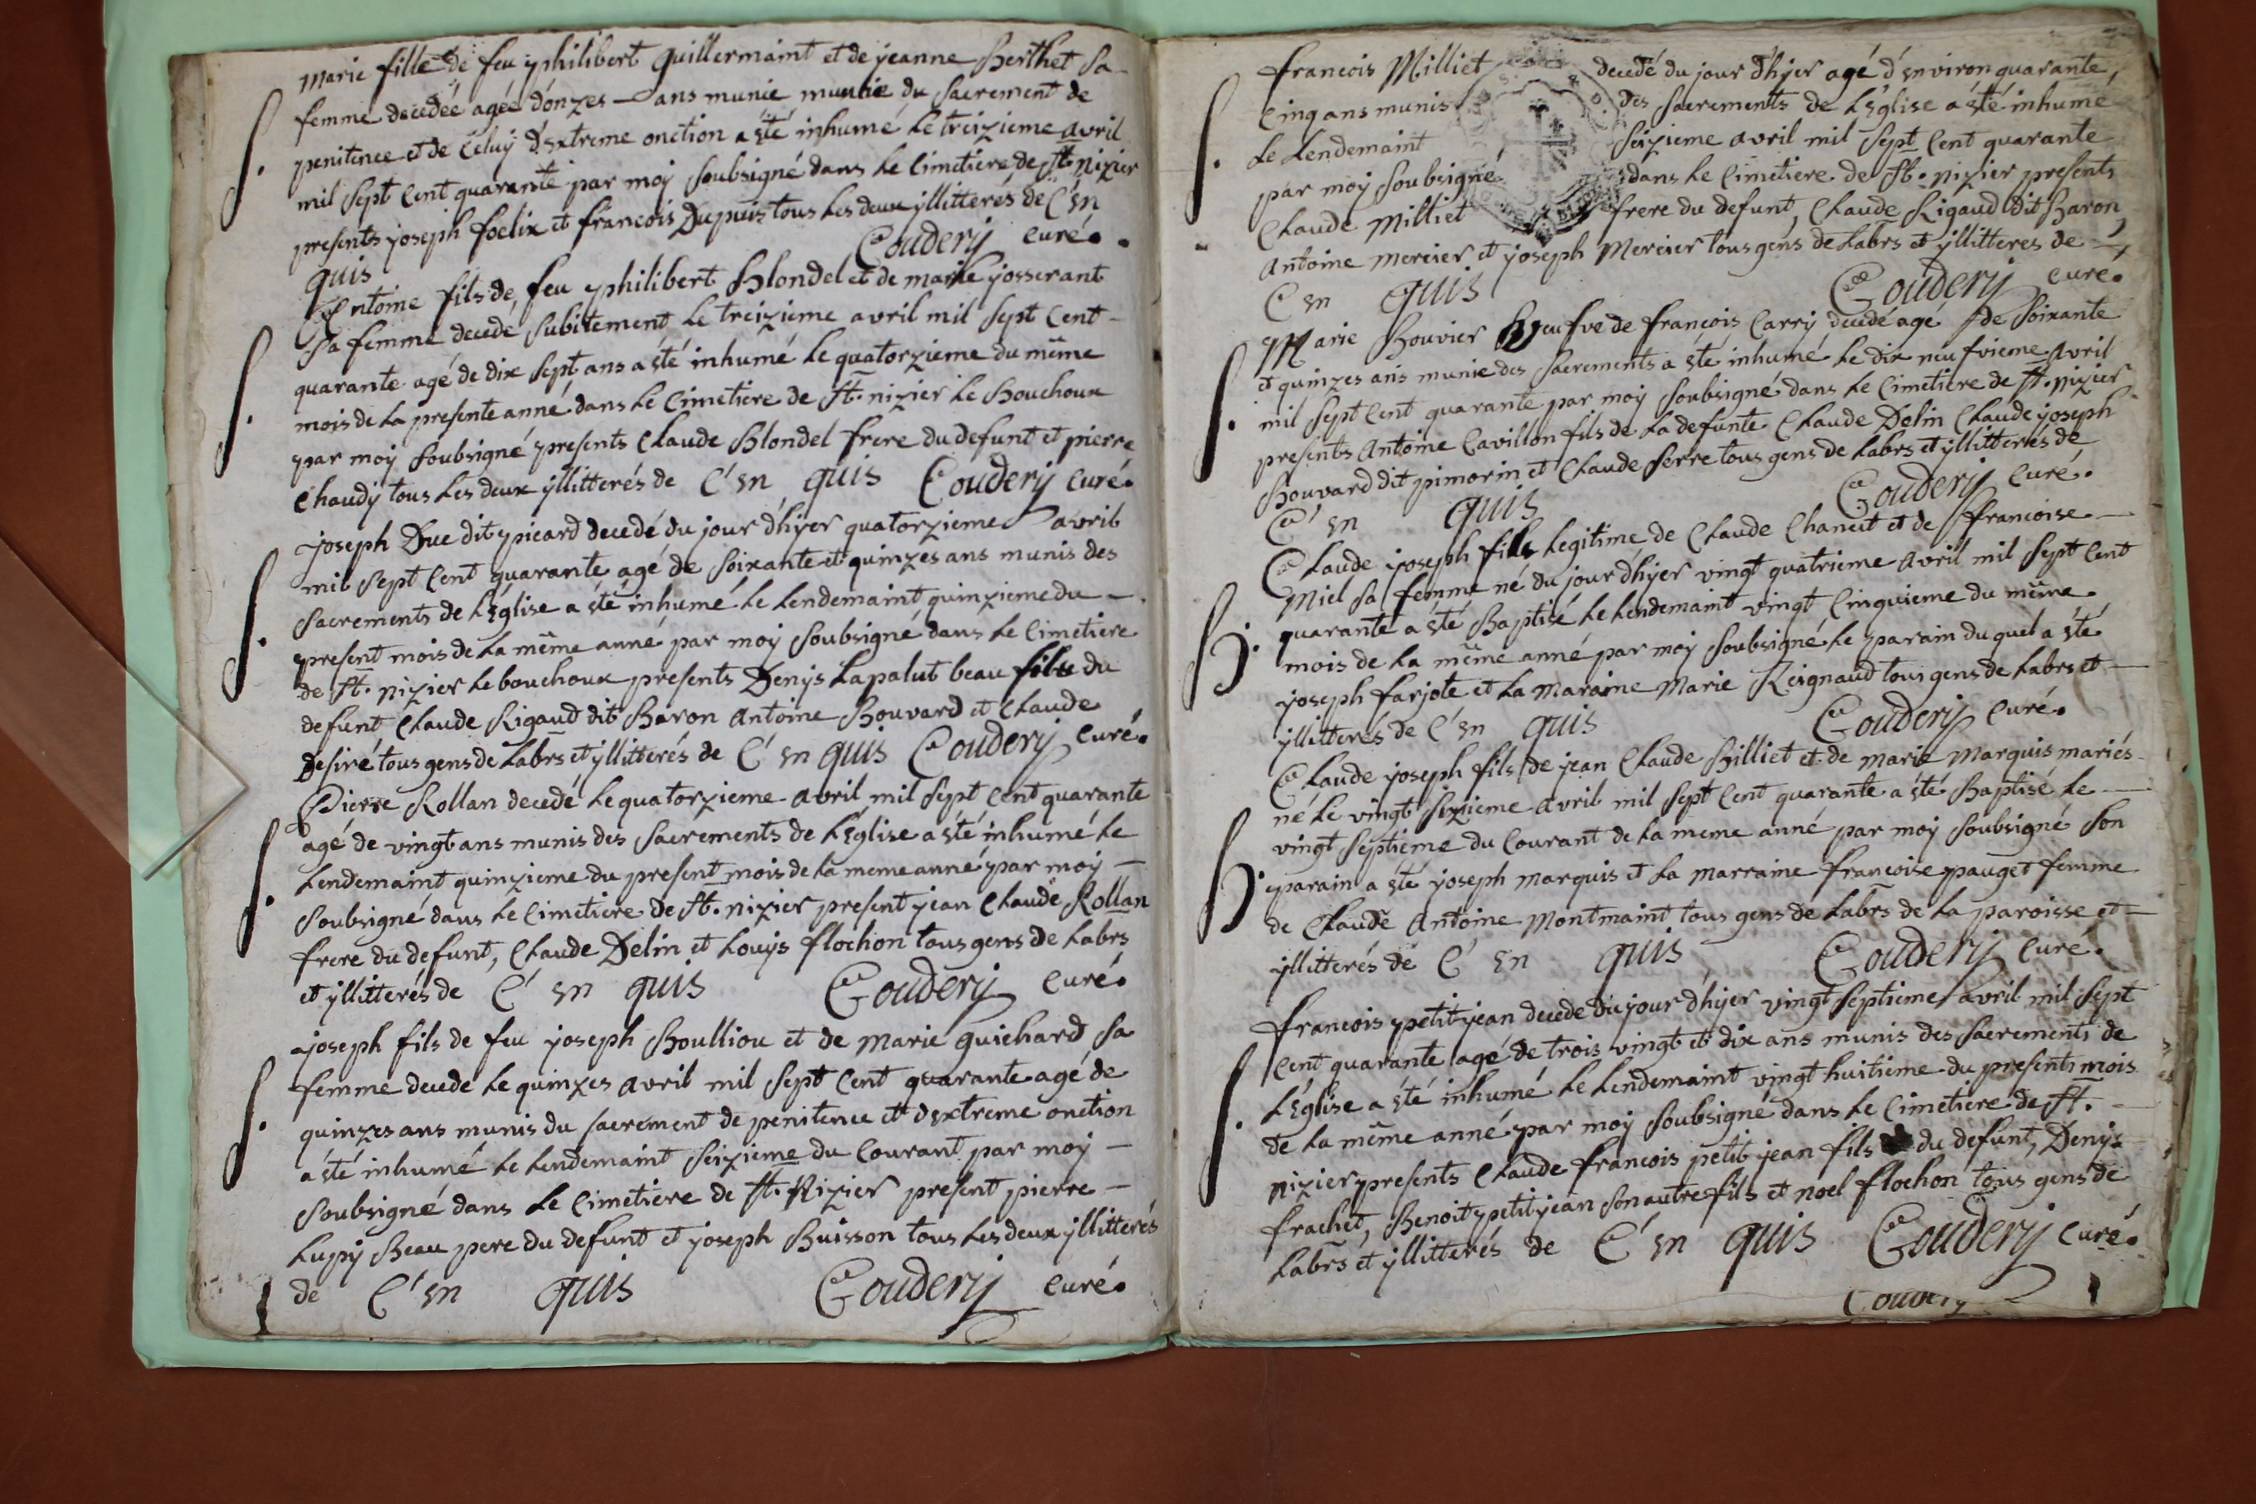 Marie fille de feu philibert Guillermaint et de jeanne Berthet sa
femme decedée agée d'onzes — ans munie munie du Sacrement de
S. penitence et de Celuy d'Extreme onction a été inhumé le treizieme avril
mil sept Cent quarante par moy soubsigné dans le Cimetiere de St. nizier
presents joseph foelix et francois Dupuis tous les deux yllitterés de C'en
quis Coudery curé.
Antoine fils de feu philibert Blondel et de marie josserant
Sa femme decedé subitement le treizieme avril mil sept Cent
S. quarante agé de dix sept ans a été inhumé le quatorzieme du même
mois de la presente anné dans le Cimetiere de St. nizier le Bouchoux
par moy soubsigné presents Claude Blondel frere du defunt et pierre
Chaudy tous les deux yllitterés de C'en quis Coudery curé.
joseph Duc dit picard decedé du jour d'hyer quatorzieme avril
mil sept Cent quarante agé de soixante et quinzes ans munis des
S. sacrements de l'Eglise a été inhumé le lendemaint quinzieme du —
present mois de la même anné par moy soubsigné dans le Cimetiere
de St. nizier le bouchoux presents Denys Lapalut beau fils du
defunt Claude Rigaud dit Baron Antoine Bouvard et Claude
Desiré tous gens de labrs et yllitterés de C'en quis Coudery curé.
Pierre Rollan decedé le quatorzieme avril mil sept Cent quarante
S. agé de vingt ans munis des Sacrements de l'Eglise a été inhumé le
lendemaint quinzieme du present mois de la meme anné par moy —
soubsigné dans le Cimetiere de St. nizier present jean Claude Rollan
frere du defunt, Claude Delin et Louys flochon tous gens de labrs
et yllitterés de C'en quis Coudery curé.
joseph fils de feu joseph Boulliou et de marie guichard sa
S. femme decedé le quinzes avril mil sept Cent quarante agé de
quinzes ans munis du sacrement de penitence et d'extreme onction
a été inhumé le lendemaint seizieme du Courant par moy —
soubsigné dans le Cimetiere de St. Nizier present pierre —
Lupy Beau pere du defunt et joseph Buisson tous les deux yllitterés
de C'en quis Coudery curé.
francois Milliet decedé du jour d'hyer agé d'environ quarante
Cinq ans munis des sacrements de L'Eglise a été inhumé
S. le lendemaint seizieme avril mil sept Cent quarante
par moy soubsigné dans le Cimetiere de St. nizier presents
Claude Milliet frere du defunt, Claude Rigaud dit Baron,
Antoine mercier et joseph Mercier tous gens de labrs et yllitteres de —
C'en quis Coudery curé.
Marie Bouvier veufve de françois Carry decedé agé de soixante
et quinzes ans munie des sacrements a été inhumé le dix neufvieme avril
S. mil sept Cent quarante par moy soubsigné dans le Cimetiere de St. nizier
presents Antoine Cavillon fils de la defunte Claude Delin Claude joseph
Bouvard dit pimorin et Claude Serre tous gens de labrs et yllitterés de
C'en quis Coudery curé.
Claude joseph fils legitime de Claude Chaneit et de francoise —
Miel sa femme né du jour d'hyer vingt quatrieme avril mil sept Cent
B. quarante a été Baptisé le lendemaint vingt Cinquieme du même
mois de la même anné par moy soubsigné le parain du quel a été
joseph farjote et la maraine Marie Reignaud tous gens de labrs et —
yllitterés de C'en quis Coudery curé.
Claude joseph fils de jean Claude Billiet et de marie Marquis mariés
né le vingt sixieme avril mil sept Cent quarante a été Baptisé le —
B. vingt septieme du Courant de la meme anné par moy soubsigné son
parain a été joseph marquis et la marraine francoise pauget femme
de Claude Antoine Montmaint tous gens de labrs de la paroisse et —
yllitterés de C'en quis Coudery curé.
francois petitjean decedé du jour d'hyer vingt septieme avril mil sept
Cent quarante agé de trois vingt et dix ans munis des sacrements de
S. l'Eglise a été inhumé le lendemaint vingt huitieme du present mois
de la même anné par moy soubsigné dans le Cimetiere de St. —
nizier presents Claude francois petitjean fils du defunt, Denys
frachet, Benoit petitjean son autre fils et noel flochon tous gens de
labrs et yllitterés de C'en quis Coudery curé.
Coudery